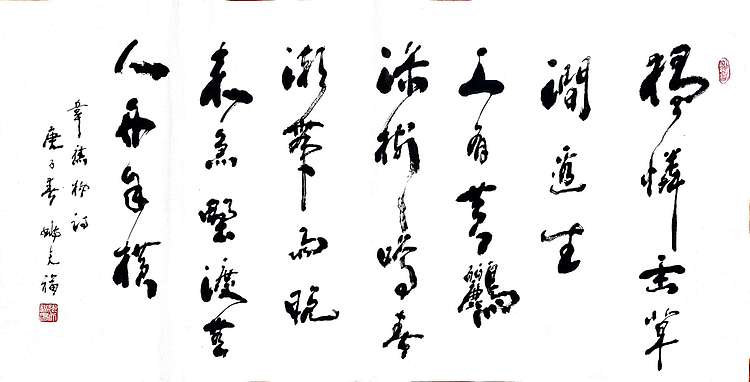 獨憐幽草
澗邊生
上有黄鸝
深樹鳴春
潮帶雨晚
来急野渡無
人舟自横
韋應物詩
庚子春福